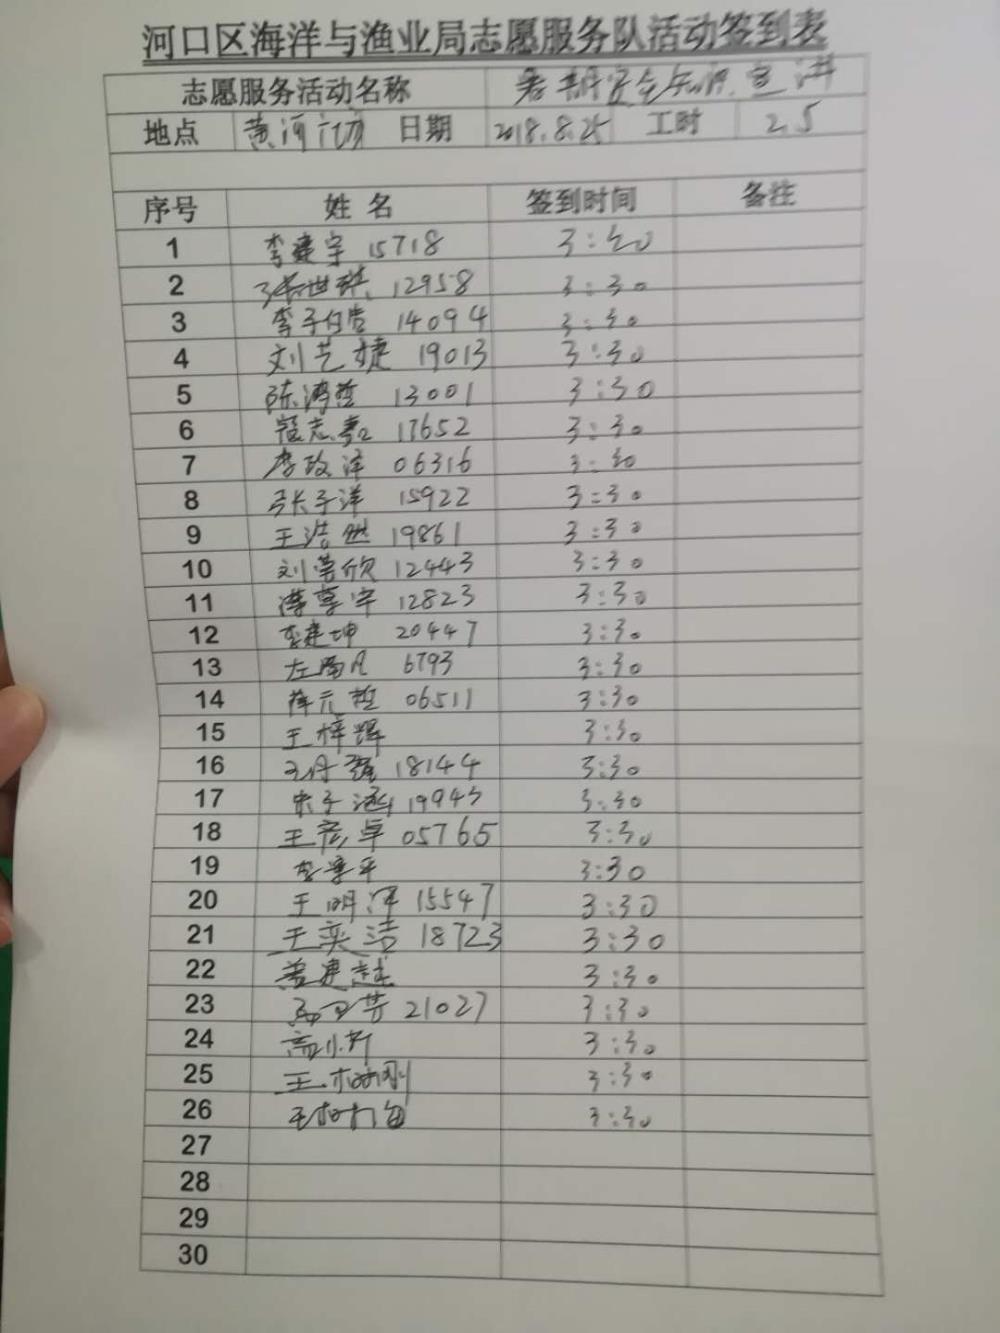 河口区海洋与渔业局志愿服务队活动签到表
志愿服务活动名称 暑期安全知识宣讲
地点 黄河广场 日期 2018.8.25 工时 2.5
序号 姓名 签到时间 备注
1 李建宇 15718 3:30
2 张世琪 12958 3:30
3 李子 14094 3:30
4 刘艺婕 19013 3:30
5 陈鸿哲 13001 3:30
6 志 17652 3:30
7 李政泽 06316 3:30
8 张子洋 15922 3:30
9 王浩然 19861 3:30
10 刘 欣 12443 3:30
11 宇 12823 3:30
12 李建坤 20447 3:30
13 左 凡 6793 3:30
14 薛元哲 06511 3:30
15 王梓辉 3:30
16 18144 3:30
17 宋子涵 19943 3:30
18 王彦卓 05765 3:30
19 李 平 3:30
20 王明泽 15547 3:30
21 王奕洁 18723 3:30
22 建 3:30
23 芳 21027 3:30
24 高小 3:30
25 王 刚 3:30
26 3:30
27
28
29
30